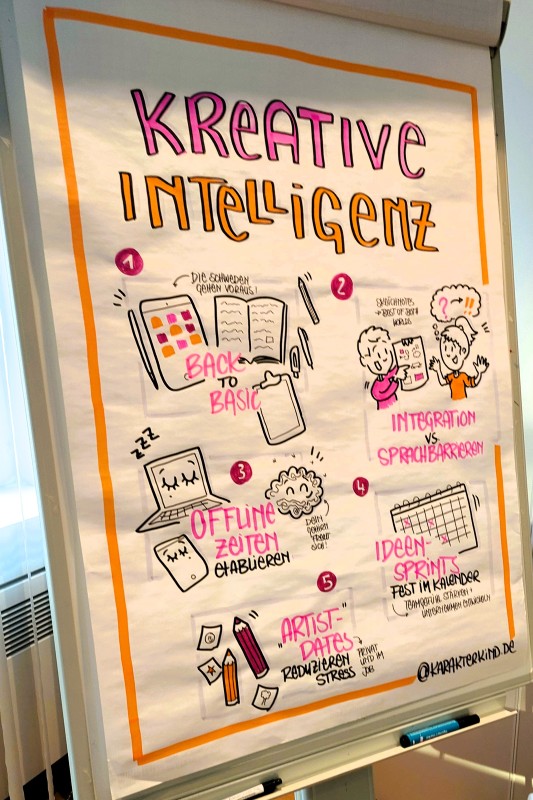 KREATIVE
INTELLIGENZ
1
DIE SCHWEDEN
GEHEN VORAUS!
BACK
TO
BASIC
2
SKETCHNOTES
BEST OF BOTH
WORLDS
? → !!
INTEGRATION
VS.
SPRACHBARRIEREN
zzz
3
OFFLINE
ZEITEN
ETABLIEREN
DEIN
GEHIRN
FREUT
SICH!
4
IDEEN-
SPRINTS
FEST IM KALENDER
TEAMGEFÜHL STÄRKEN +
UNTERNEHMEN ENTWICKELN
5
„ARTIST-
DATES"
REDUZIEREN
STRESS
PRIVAT
UND IM
JOB
@KARAKTERKIND.DE